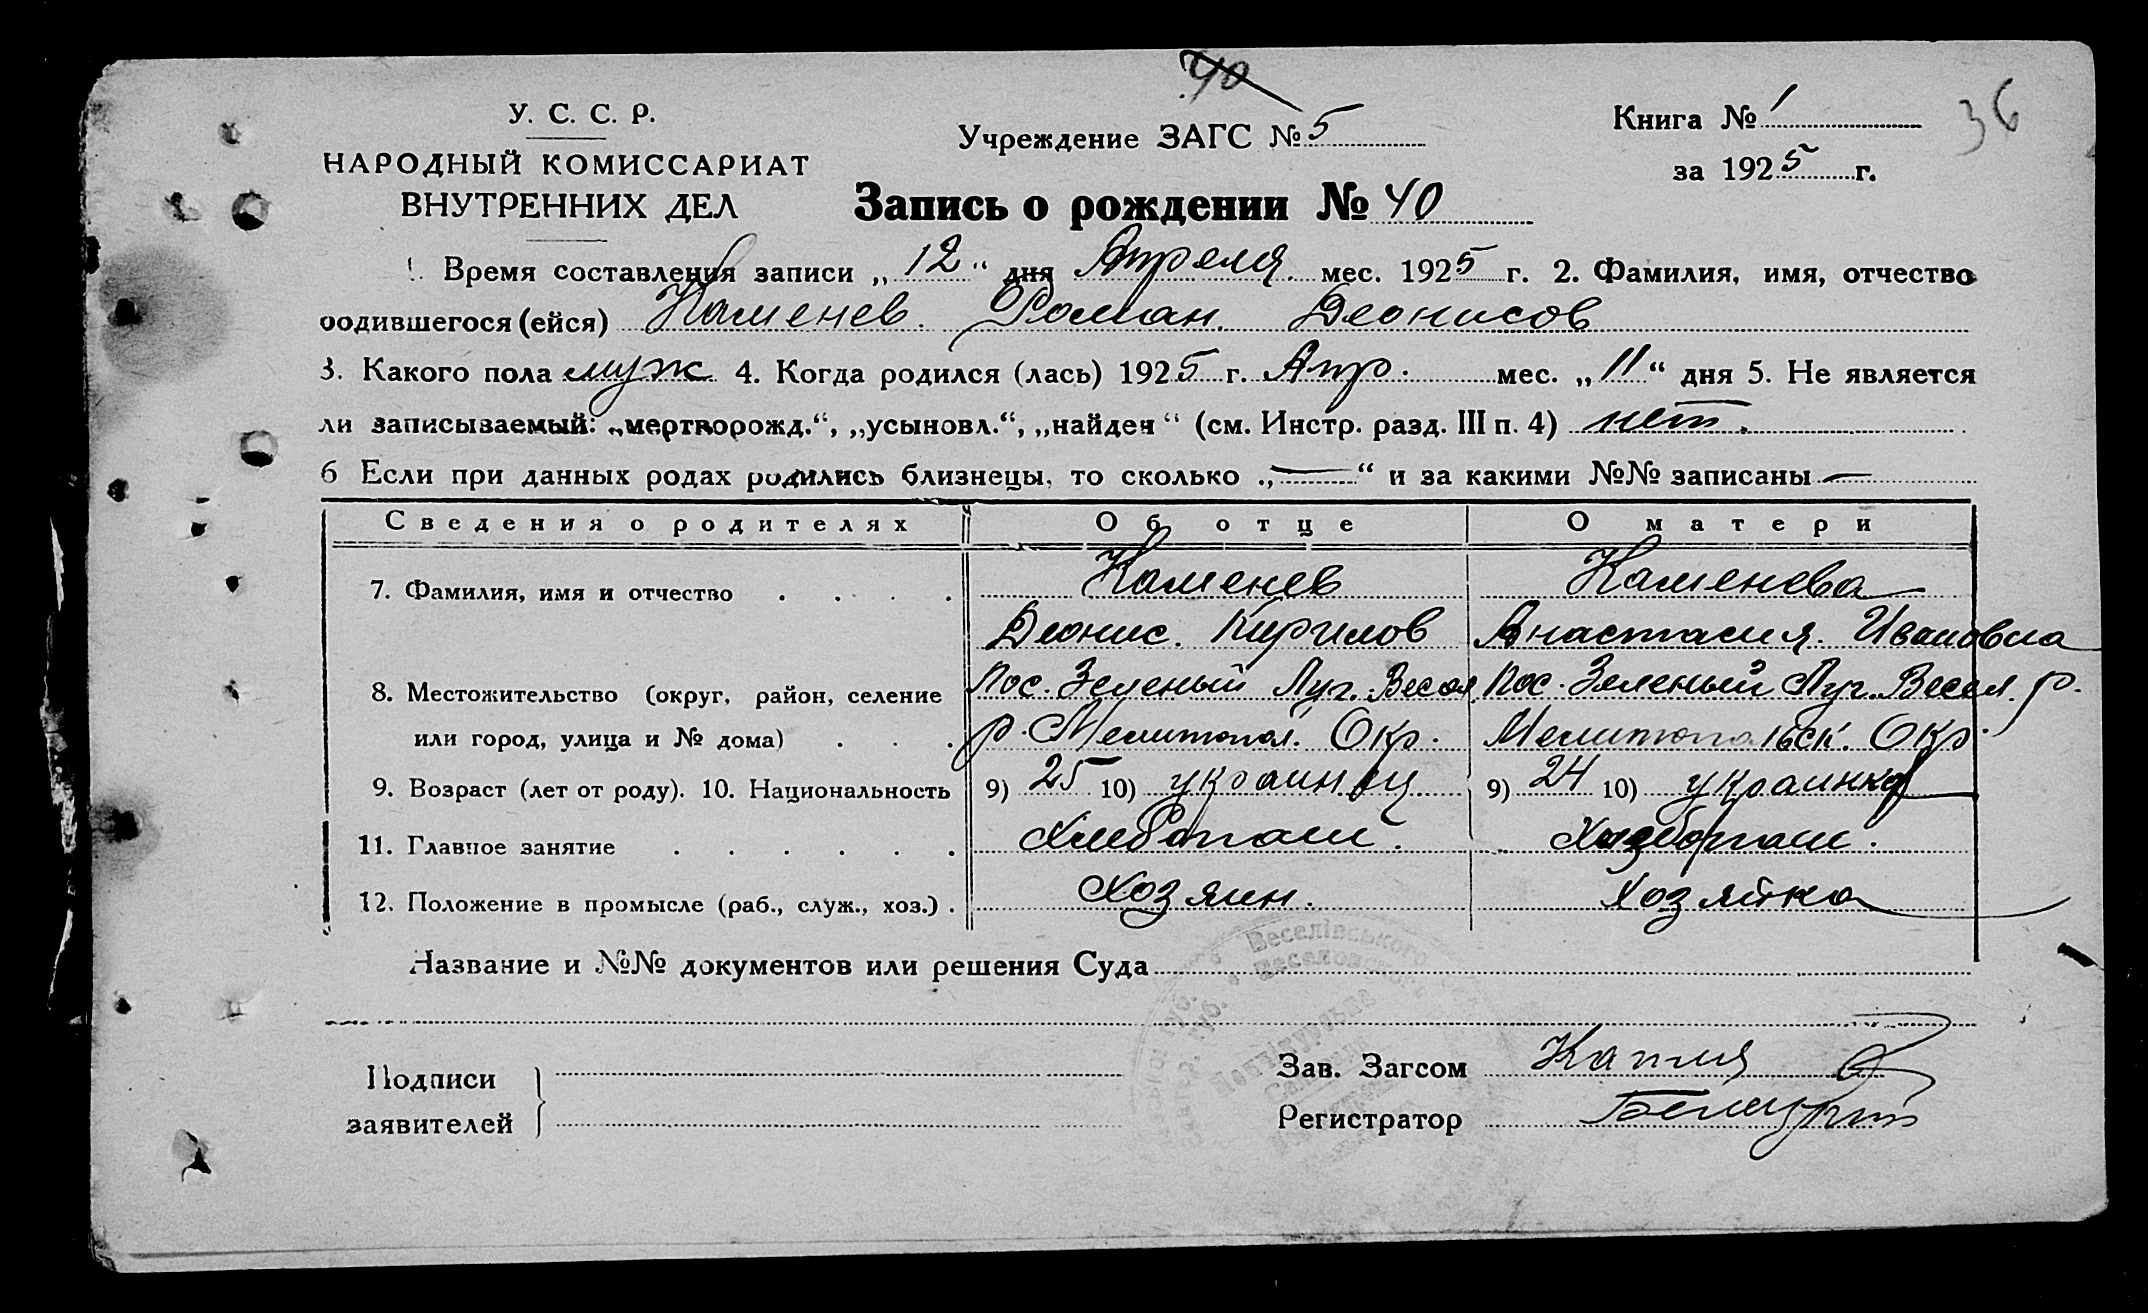 40
У. С. С. Р.
НАРОДНЫЙ КОМИССАРИАТ
ВНУТРЕННИХ ДЕЛ
Учреждение ЗАГС № 5
Книга № 1
36
за 1925 г.
Запись о рождении № 40
1. Время составления записи „12“ дня Апреля мес. 1925 г. 2. Фамилия, имя, отчество
родившегося (ейся) Каменев Роман Деонисов
3. Какого пола муж 4. Когда родился (лась) 1925 г. Апр. мес. „11“ дня 5. Не является
ли записываемый: „мертворожд.“, „усыновл.“, „найден“ (см. Инстр. разд. III п. 4) нет.
6 Если при данных родах родились близнецы, то сколько „—“ и за какими №№ записаны —
Сведения о родителях Об отце О матери
7. Фамилия, имя и отчество . . . . Каменев Каменева
Деонис. Кирилов Анастасия. Ивановна
8. Местожительство (округ, район, селение Пос. Зеленый Луг. Весел Пос. Зеленый Луг. Весел. р.
или город, улица и № дома) . . . р. Мелитопол. Окр. Мелитопольск. Окр.
9. Возраст (лет от роду). 10. Национальность 9) 25 10) украинец 9) 24 10) украинка
11. Главное занятие . . . . . . Хлебопаш. Хлебопаш.
12. Положение в промысле (раб., служ., хоз.) . Хозяин. Хозяйка
Название и №№ документов или решения Суда
Веселівського
Веселовского
Подписи
заявителей
Зав. Загсом
Регистратор